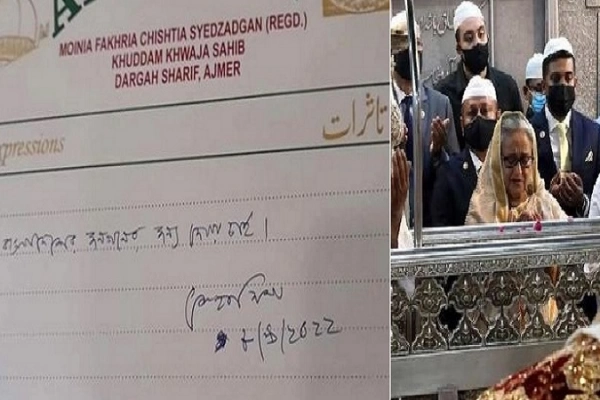 MOINIA FAKHRIA CHISHTIA SYEDZADGAN (REGD.)
KHUDDAM KHWAJA SAHIB
DARGAH SHARIF, AJMER
xpressions تاثرات
বাংলাদেশের জনগণের জন্য দোয়া চাই।
শেখ হাসিনা
৮/৯/২০২২